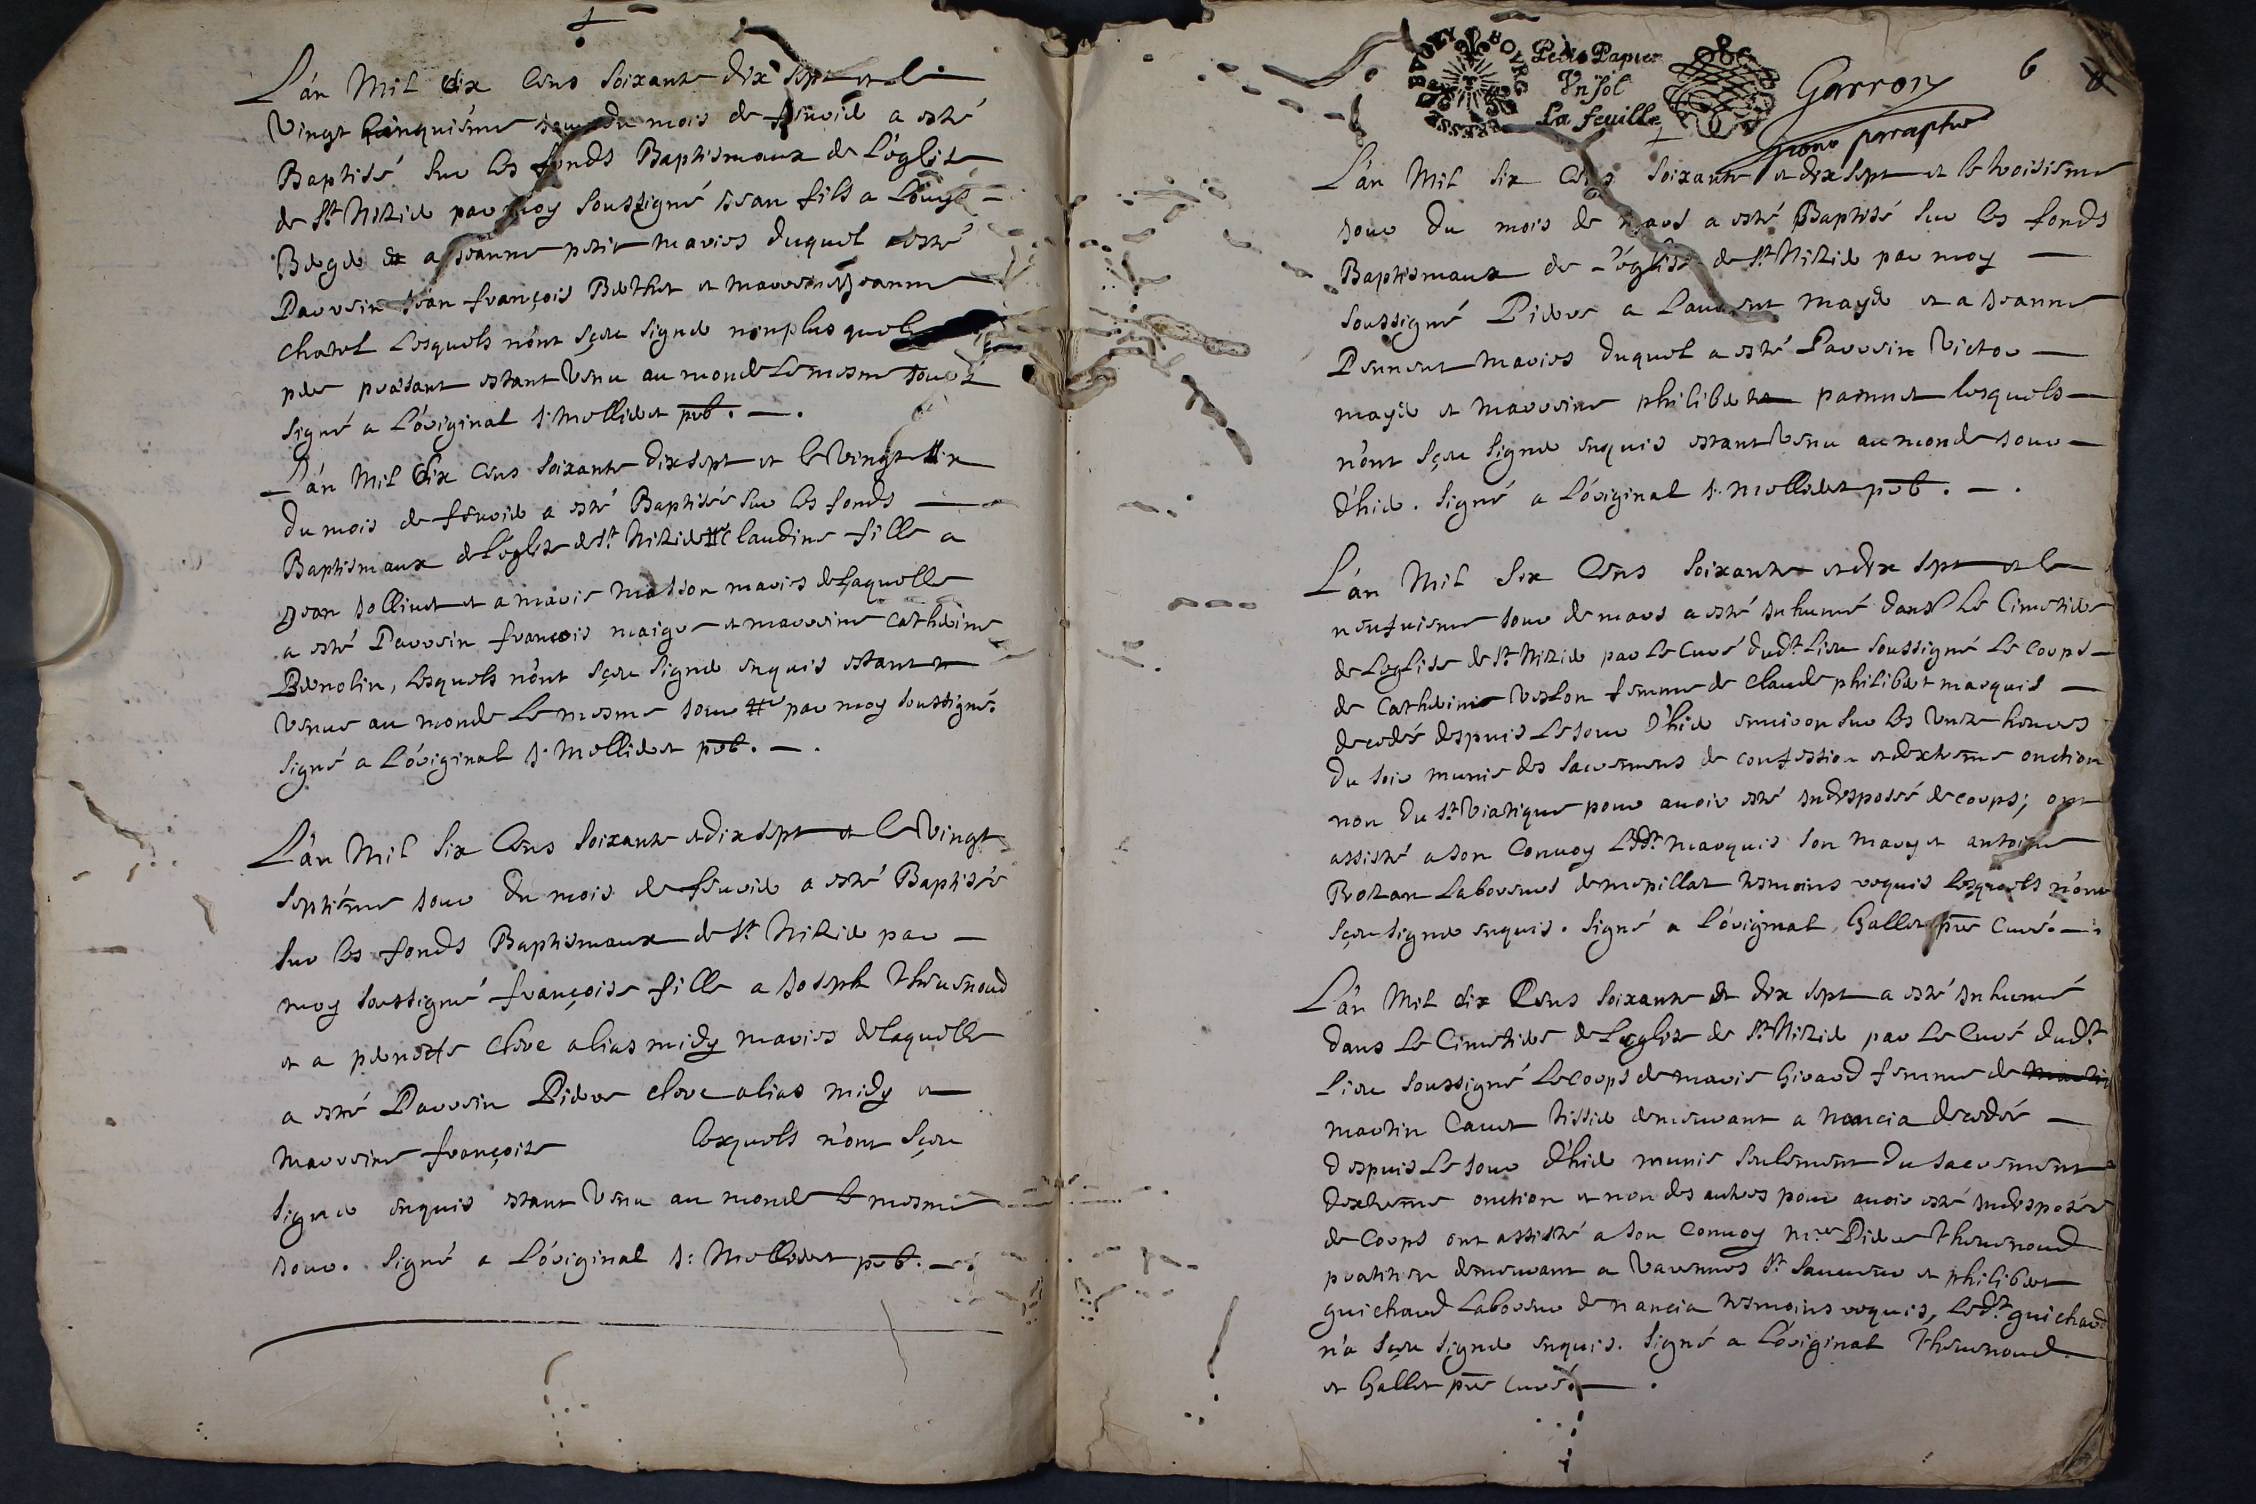 L'an Mil Six Cens Soixante dix sept et le
Vingt Cinquiéme jour du mois de feurier a esté
Baptisé sur les fonds Baptismaux de L'église
de St Nizier par moy soussigné Jean fils a Louys
Berger et a Jeanne petit maries duquel a esté
Parrein Jean françois Berthet et marreine Jeanne
Charel Lesquels n'ont sçeu signer nonplus que le
pere presant estant Venu au monde Le mesme jour
signé a L'original J: Mollieret pbr.
L'an Mil Six Cens soixante dix sept et le Vingt Six
du mois de feurier a esté Baptisée sur les fonds
Baptismaux de L'eglise de St Nizier Claudine fille a
Jean Jollivet et a marie masson maries de laquelle
a esté Parrein françois maigre et marreine Catherine
Bernolin, Lesquels n'ont sçeu signer enquis estant
Venue au monde Le mesme jour par moy soussigné.
signé a L'original J: Mollieret pbr.
L'an Mil Six Cens Soixante et dix sept et le Vingt
septiéme jour du mois de feurier a esté Baptisée
sur les fonds Baptismaux de St Nizier par
moy soussigné françoise fille a Joseph Theuenoud
et a pernette Clere alias midy maries de laquelle
a esté Parrein Pierre Clere alias midy et
marreine françoise lesquels n'ont sçeu
signer enquis estant Venu au monde le mesme
jour. signé a L'original J: Mollieret pbr.
BOURG
Petit Papier
Un sol
La feuille
Garron
6
8
paraphe
L'an Mil Six Cens Soixante et dix sept et le troisiéme
jour du mois de mars a esté Baptisé sur les fonds
Baptismaux de L'église de St Nizier par moy
soussigné Pierre a Laurent mayer et a Jeanne
Pennent maries duquel a esté Parrein Victor
mayer et marreine philiberte pannet lesquels
n'ont sçeu signer enquis estant Venu au monde jour
d'hier. signé a L'original J: Mollieret pbr.
L'an Mil Six Cens Soixante et dix sept et le
neufuieme jour de mars a esté inhumé dans Le Cimetiere
de Leglise de St Nizier par Le Curé dudt Lieu soussigné Le Corps
de Catherine Veslon femme de Claude philibert marquis
decedée depuis Le jour d'hier enuiron sur les Unze heures
du soir munie des sacremens de confession et dextreme onction
non du St Viatique pour auoir esté indisposée de corps; ont
assisté a son Conuoy Ledt marquis son mary et antoine
Brozan Laboureurs de mepillat tesmoins requis Lesquels n'ont
sçeu signer enquis. signé a L'original, Gallet pre Curé.
L'an Mil Six Cens Soixante et dix sept a esté inhumé
dans Le Cimetiere de Leglise de St Nizier par Le Curé dudt
Lieu soussigné Le corps de marie Girard femme de
martin Canet tissier demeurant a Nancia decedée
depuis Le jour d'hier munie seulement du sacrement
dextreme onction et non des autres pour auoir esté indisposée
de Corps ont assisté a son Conuoy mre Pierre Theuenoud
praticien demeurant a Varennes St Sauueur et philibert
guichard Laboureur de nancia tesmoins requis, Ledt guichard
n'a sçeu signer enquis. signé a L'original Theuenoud
et Gallet pre Curé.